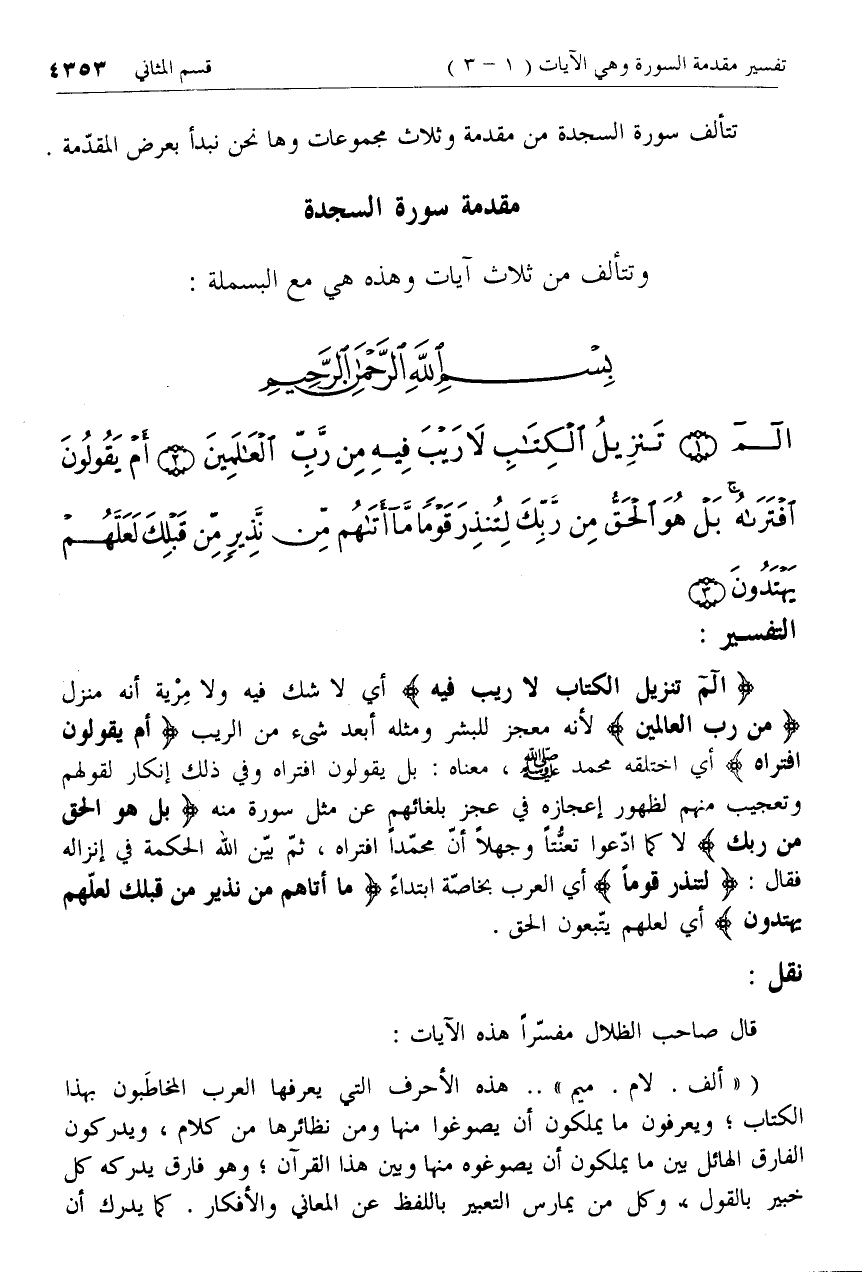 تفسير مقدمة السورة وهي الآيات ( ١ - ٣ ) قسم المثاني ٤٣٥٣
تتألف سورة السجدة من مقدمة وثلاث مجموعات وها نحن نبدأ بعرض المقدّمة .
مقدمة سورة السجدة
وتتألف من ثلاث آيات وهذه هي مع البسملة :
بِسْمِ ٱللَّهِ ٱلرَّحْمَٰنِ ٱلرَّحِيمِ
الٓمٓ ١ تَنزِيلُ ٱلْكِتَٰبِ لَا رَيْبَ فِيهِ مِن رَّبِّ ٱلْعَٰلَمِينَ ٢ أَمْ يَقُولُونَ
ٱفْتَرَىٰهُ ۚ بَلْ هُوَ ٱلْحَقُّ مِن رَّبِّكَ لِتُنذِرَ قَوْمًا مَّآ أَتَىٰهُم مِّن نَّذِيرٍ مِّن قَبْلِكَ لَعَلَّهُمْ
يَهْتَدُونَ ٣
التفسير :
﴿ الٓمٓ تنزيل الكتاب لا ريب فيه ﴾ أي لا شك فيه ولا مِرْية أنه منزل
﴿ من رب العالمين ﴾ لأنه معجز للبشر ومثله أبعد شىء من الريب ﴿ أم يقولون
افتراه ﴾ أي اختلقه محمد ﷺ ، معناه : بل يقولون افتراه وفي ذلك إنكار لقولهم
وتعجيب منهم لظهور إعجازه في عجز بلغائهم عن مثل سورة منه ﴿ بل هو الحق
من ربك ﴾ لا كما ادّعوا تعنُّتاً وجهلاً أنّ محمّداً افتراه ، ثمّ بيّن الله الحكمة في إنزاله
فقال : ﴿ لتنذر قوماً ﴾ أي العرب بخاصّة ابتداءً ﴿ ما أتاهم من نذير من قبلك لعلّهم
يهتدون ﴾ أي لعلهم يتّبعون الحق .
نقل :
قال صاحب الظلال مفسّراً هذه الآيات :
( « ألف . لام . ميم » .. هذه الأحرف التي يعرفها العرب المخاطَبون بهذا
الكتاب ؛ ويعرفون ما يملكون أن يصوغوا منها ومن نظائرها من كلام ، ويدركون
الفارق الهائل بين ما يملكون أن يصوغوه منها وبين هذا القرآن ؛ وهو فارق يدركه كل
خبير بالقول ، وكل من يمارس التعبير باللفظ عن المعاني والأفكار . كما يدرك أن